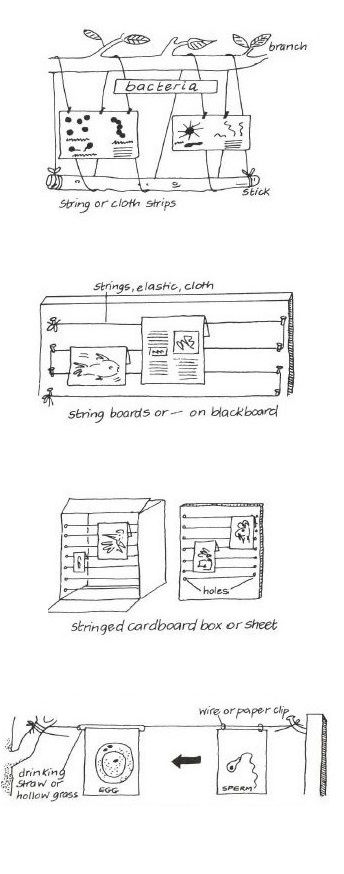 branch
bacteria
stick
String or cloth strips
strings, elastic, cloth
string boards or — on blackboard
holes
stringed cardboard box or sheet
wire or paper clip
drinking
straw or
hollow grass
EGG
SPERM